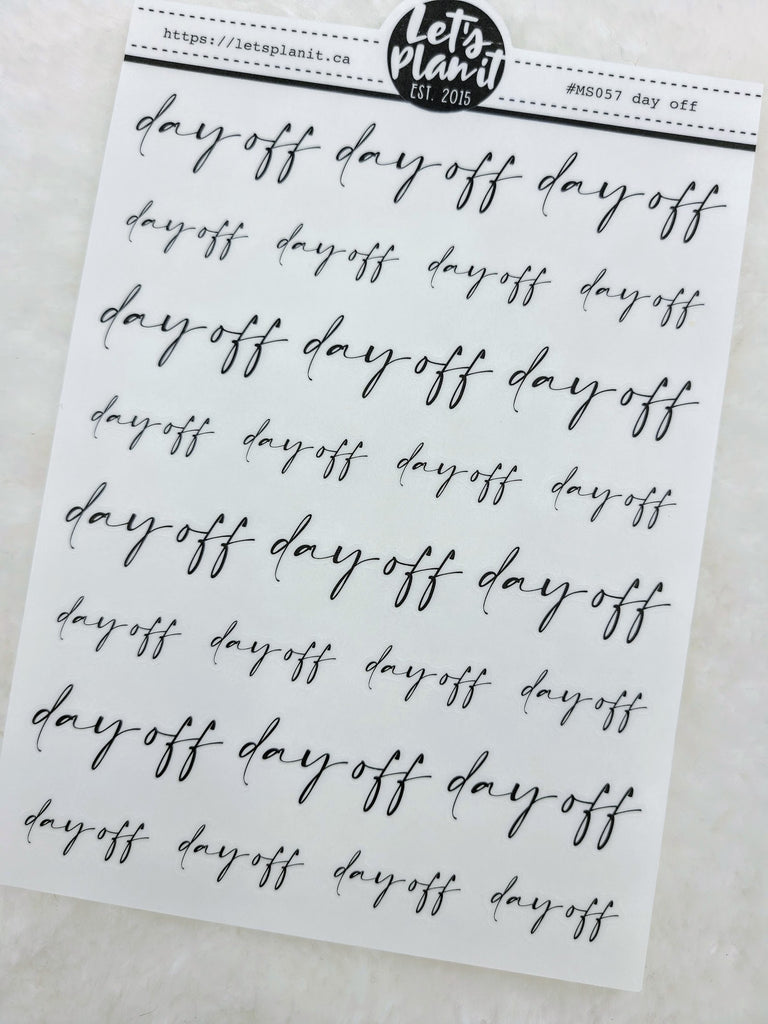 https://letsplanit.ca
Let's
plan it
EST. 2015
#MS057 day off
day off day off day off
day off day off day off day off
day off day off day off
day off day off day off day off
day off day off day off
day off day off day off day off
day off day off day off
day off day off day off day off